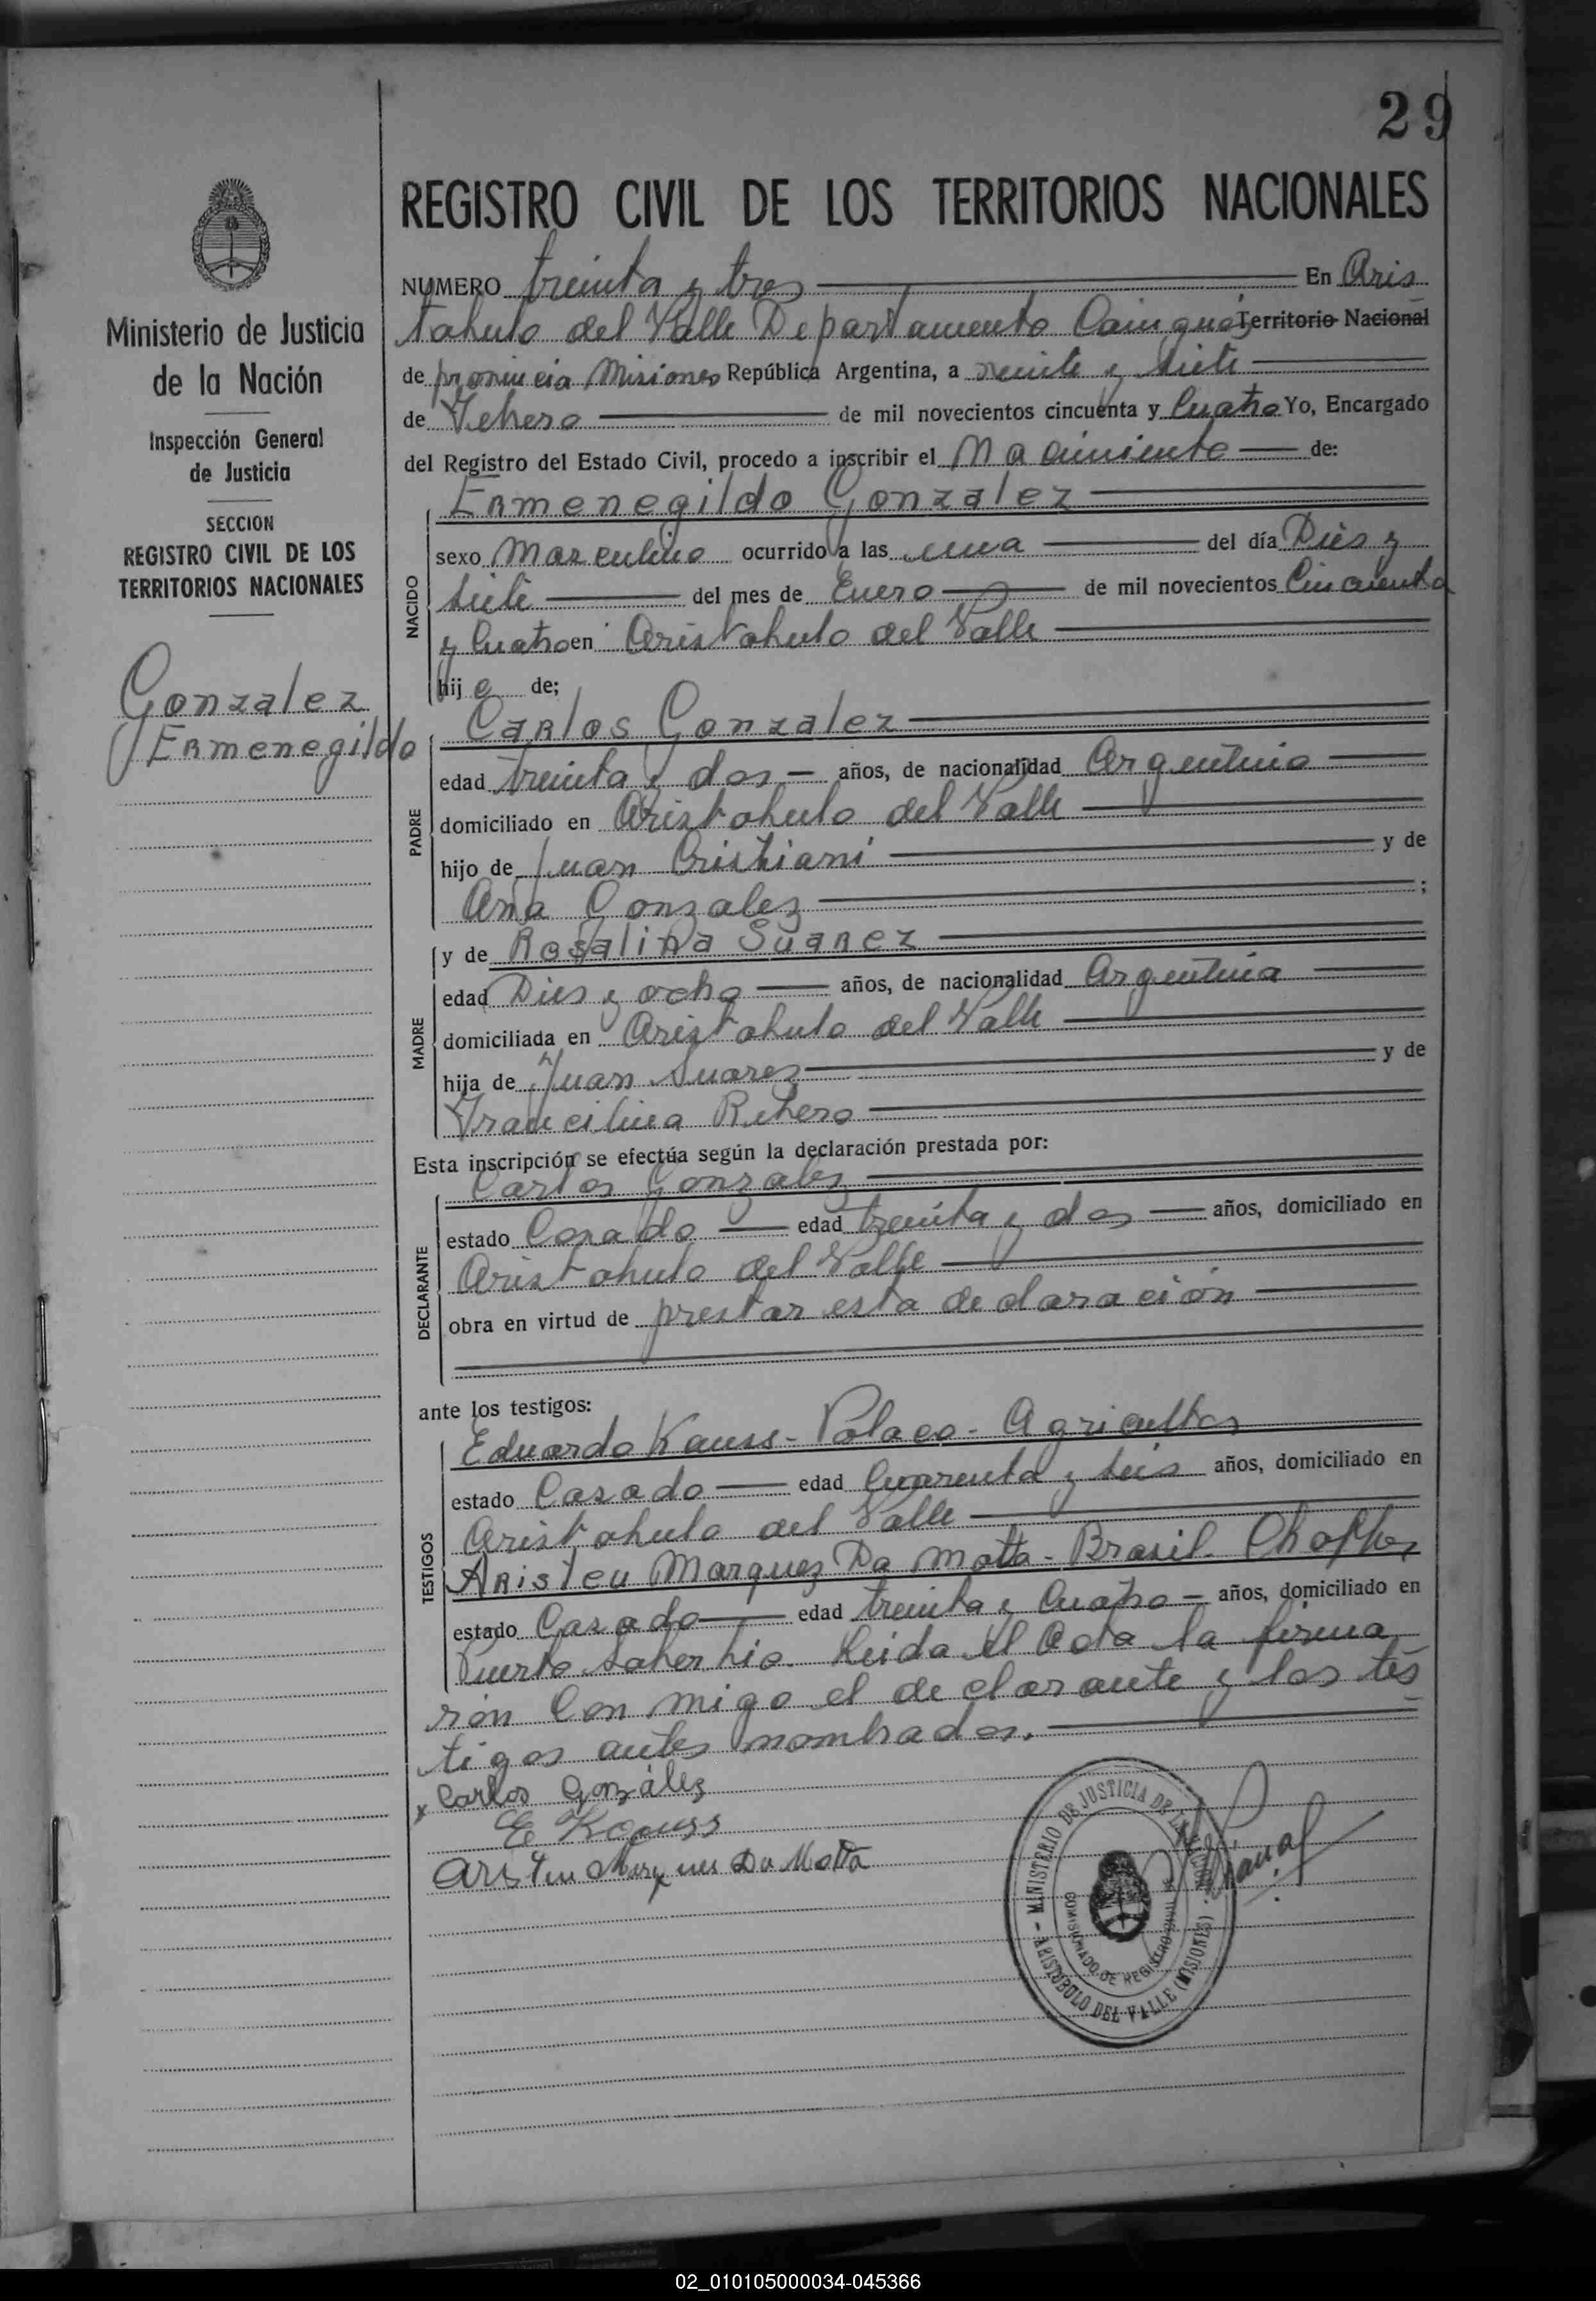 29
REGISTRO CIVIL DE LOS TERRITORIOS NACIONALES
Ministerio de Justicia
de la Nación
Inspección General
de Justicia
SECCION
REGISTRO CIVIL DE LOS
TERRITORIOS NACIONALES
Gonzalez
Ermenegildo
NUMERO treinta y tres En Aris
tobulo del Valle Departamento Cainguás Territorio Nacional
de provincia Misiones República Argentina, a veinte y siete
de Febrero de mil novecientos cincuenta y Cuatro Yo, Encargado
del Registro del Estado Civil, procedo a inscribir el Nacimiento de:
NACIDO
Ermenegildo Gonzalez
sexo Masculino ocurrido a las una del día Dies y
siete del mes de Enero de mil novecientos Cincuenta
y Cuatro en Aristobulo del Valle
hijo de;
PADRE
Carlos Gonzalez
edad treinta y dos años, de nacionalidad Argentino
domiciliado en Aristobulo del Valle
hijo de Juan Cristiani y de
Ana Gonzalez ;
MADRE
y de Rosalina Suarez
edad Dies y ocho años, de nacionalidad Argentina
domiciliada en Aristobulo del Valle
hija de Juan Suarez y de
Francilina Ribero
Esta inscripción se efectúa según la declaración prestada por:
DECLARANTE
Carlos Gonzalez
estado Casado edad treinta y dos años, domiciliado en
Aristobulo del Valle
obra en virtud de prestar esta declaración
ante los testigos:
TESTIGOS
Eduardo Kauss - Polaco - Agricultor
estado Casado edad Cuarenta y seis años, domiciliado en
Aristobulo del Valle
Aristeu Marquez Da Motta - Brasil - Choffer
estado Casado edad treinta y Cuatro años, domiciliado en
Puerto Saberbio. Leida el Acta la firma
rón Con migo el declarante y los tes
tigos antes nombrados.
x Carlos González
E Kauss
Aristeu Marques Da Motta
MINISTERIO DE JUSTICIA DE LA NACION
COMISIONADO DE REGISTRO CIVIL
ARISTOBULO DEL VALLE (MISIONES)
02_010105000034-045366